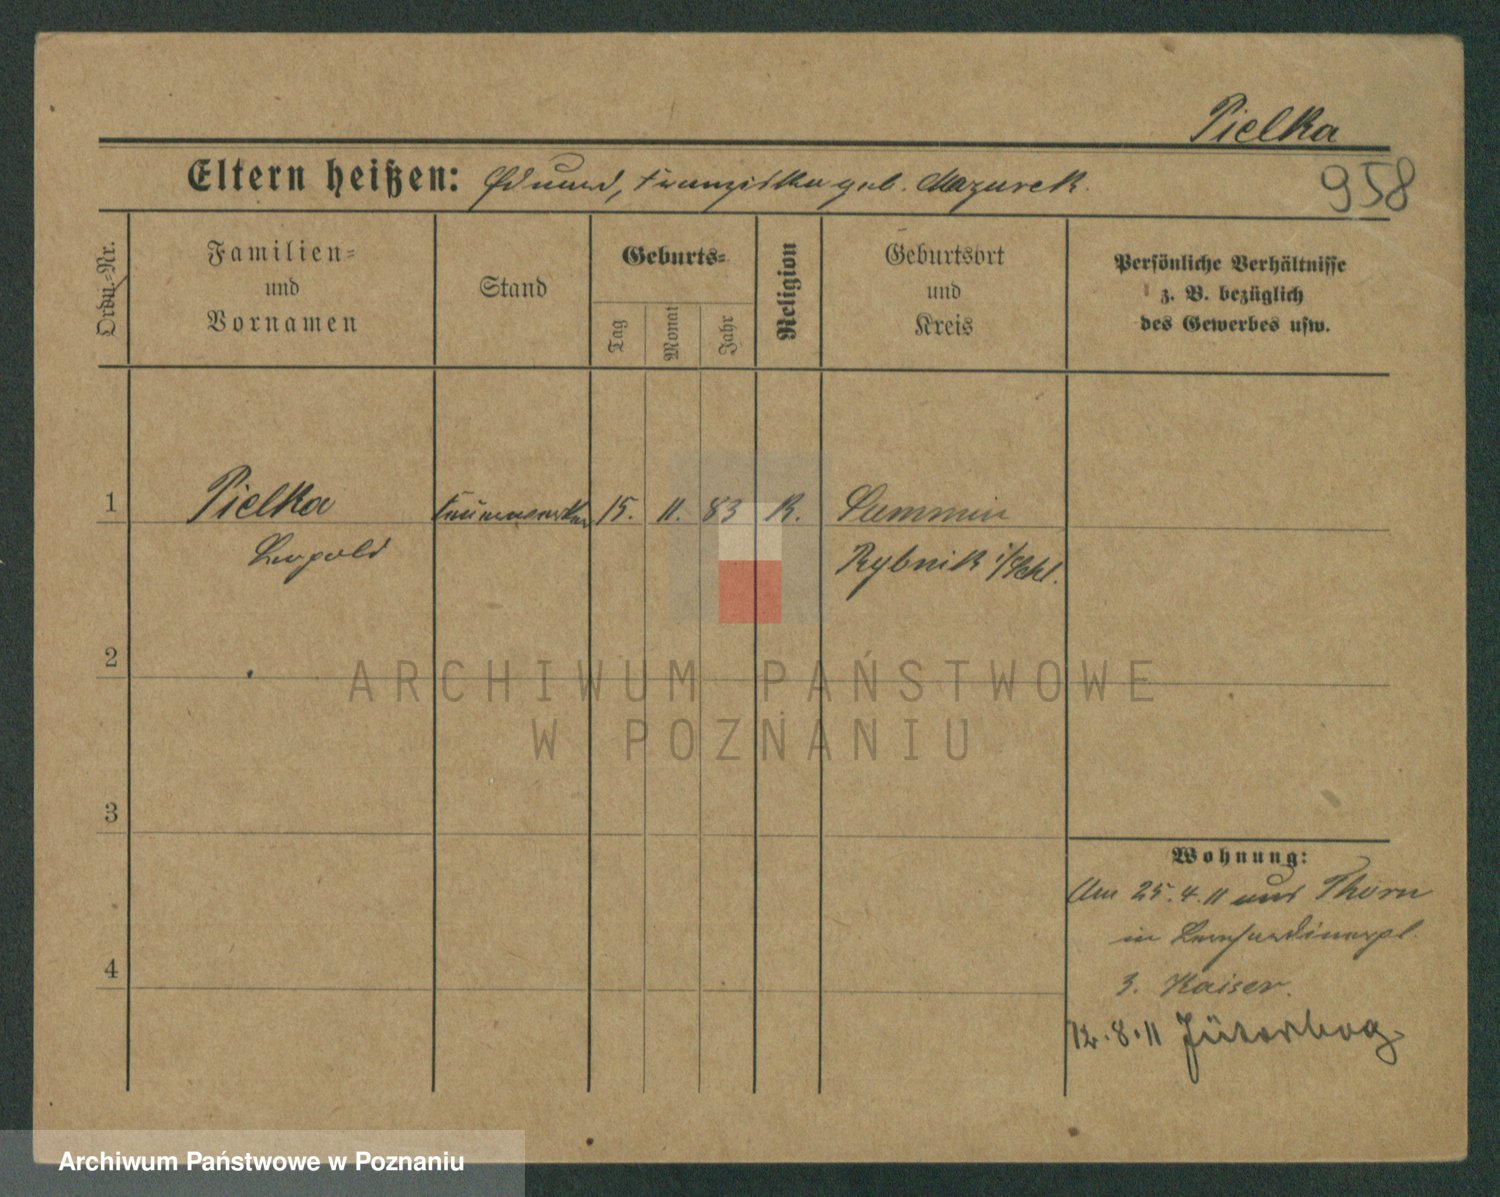 Pielka
Eltern heißen: Eduard, Franziska geb. Mazurek.
958
Ordn.-Nr.
Familien-
und
Vornamen
Stand
Geburts-
Tag
Monat
Jahr
Religion
Geburtsort
und
Kreis
Persönliche Verhältnisse
z. B. bezüglich
des Gewerbes usw.
1
Pielka
15. 11. 83 R. Summin
Leopold
Rybnik i/Schl.
2
ARCHIWUM PAŃSTWOWE
W POZNANIU
3
Wohnung:
Am 25.4.11 aus Thorn
in
4
3. Kaiser.
12.8.11 Jüterbog
Archiwum Państwowe w Poznaniu